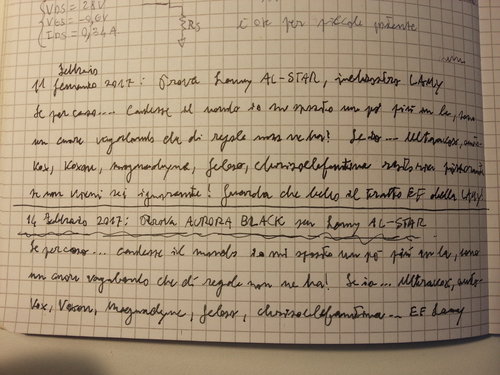 VDS = 28V
VGS = -0,6V
IDS = 0,34A
RS
è ok per piccole potenze
Febbraio
11 gennaio 2017: Prova Lamy AL-STAR, inchiostro LAMY
Se per caso... cadesse il mondo io mi sposto un po' più in la, sono
un cuore vagabondo che di regole non ne ha! Se io...
Vox, Voxson, magnadyne, Geloso, chrisoelefantina
se non vieni sei ignorante! Guarda che bello il tratto EF della LAMY
14 Febbraio 2017: PROVA AURORA BLACK su Lamy AL-STAR
Se per caso... cadesse il mondo io mi sposto un po' più in la, sono
un cuore vagabondo che di regole non ne ha! Se io...
Vox, Voxson, Magnadyne, Geloso, chrisoelefantina... EF Lamy